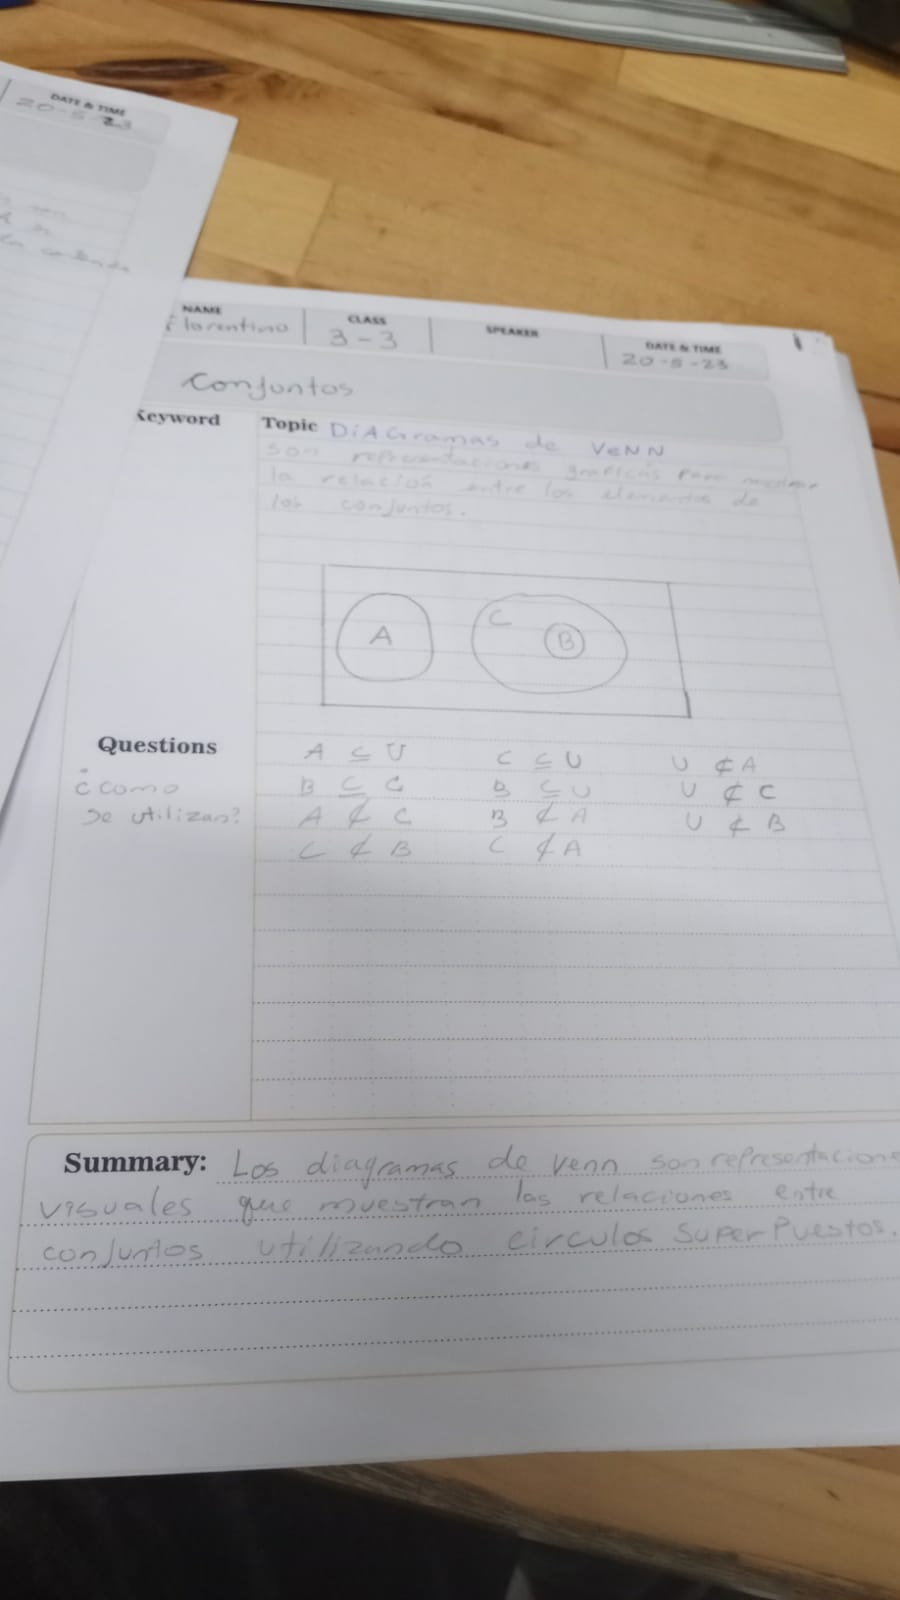 DATE & TIME
20-5-23
NAME
Florentino
CLASS
3-3
SPEAKER
DATE & TIME
20-5-23
Conjuntos
Keyword
Topic DiAGramas de VeNN
son representaciones graficas para mostrar
la relación entre los elementos de
los conjuntos.
A
C
B
Questions
¿como
se utilizan?
A ⊆ U C ⊆ U U ⊄ A
B ⊆ C B ⊆ U U ⊄ C
A ⊄ C B ⊄ A U ⊄ B
C ⊄ B C ⊄ A
Summary: Los diagramas de venn son representacione
visuales que muestran las relaciones entre
conjuntos utilizando circulos superpuestos.